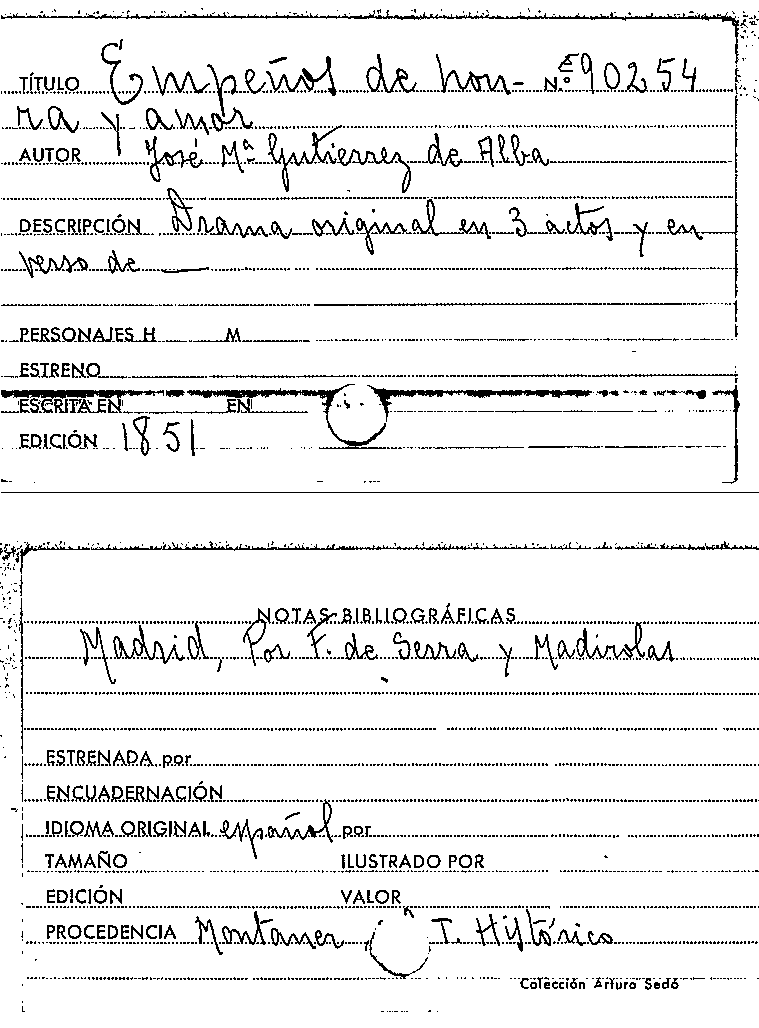 TÍTULO Empeños de hon- Nº E 90254
ra y amor
AUTOR José Mª Gutierrez de Alba
DESCRIPCIÓN Drama original en 3 actos y en
verso de —
PERSONAJES H M
ESTRENO
ESCRITA EN EN
EDICIÓN 1851
NOTAS BIBLIOGRÁFICAS
Madrid, Por F. de Serra y Madirolas
ESTRENADA por
ENCUADERNACIÓN
IDIOMA ORIGINAL español por
TAMAÑO ILUSTRADO POR
EDICIÓN VALOR
PROCEDENCIA Montaner T. Histórico
Colección Arturo Sedó